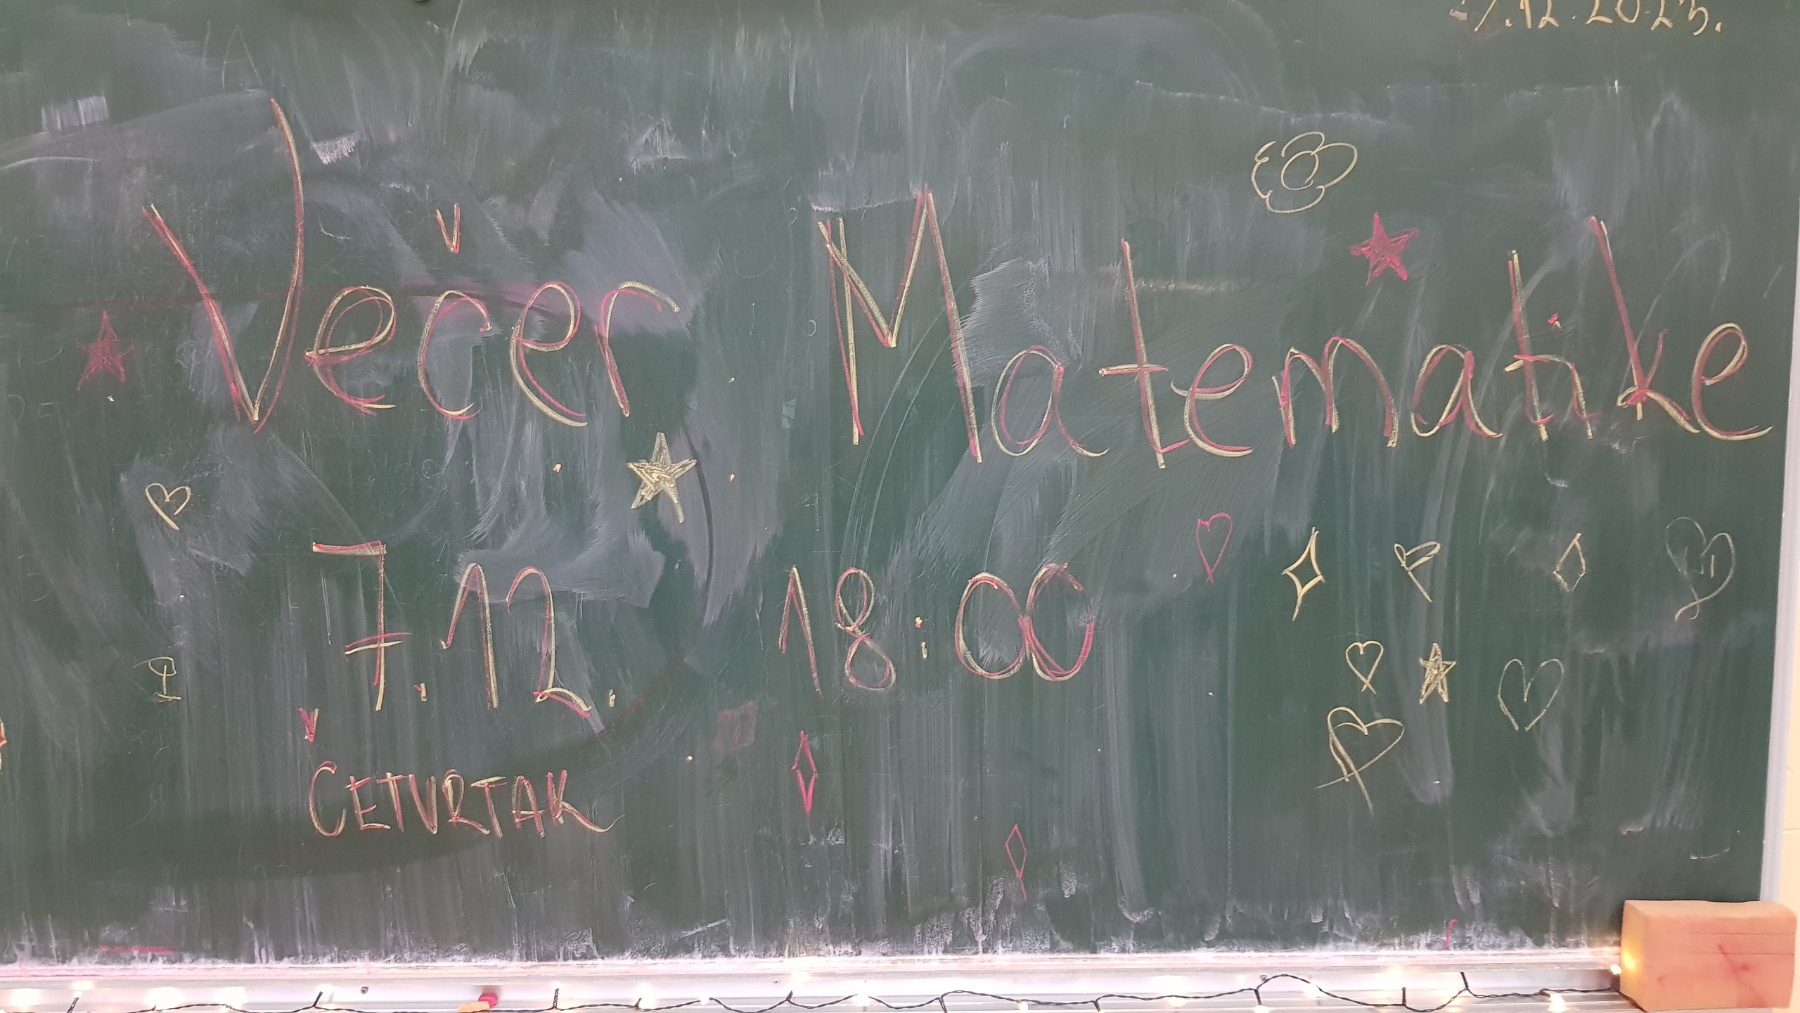 7.12.2023.
Večer Matematike
7.12. 18:00
ČETVRTAK